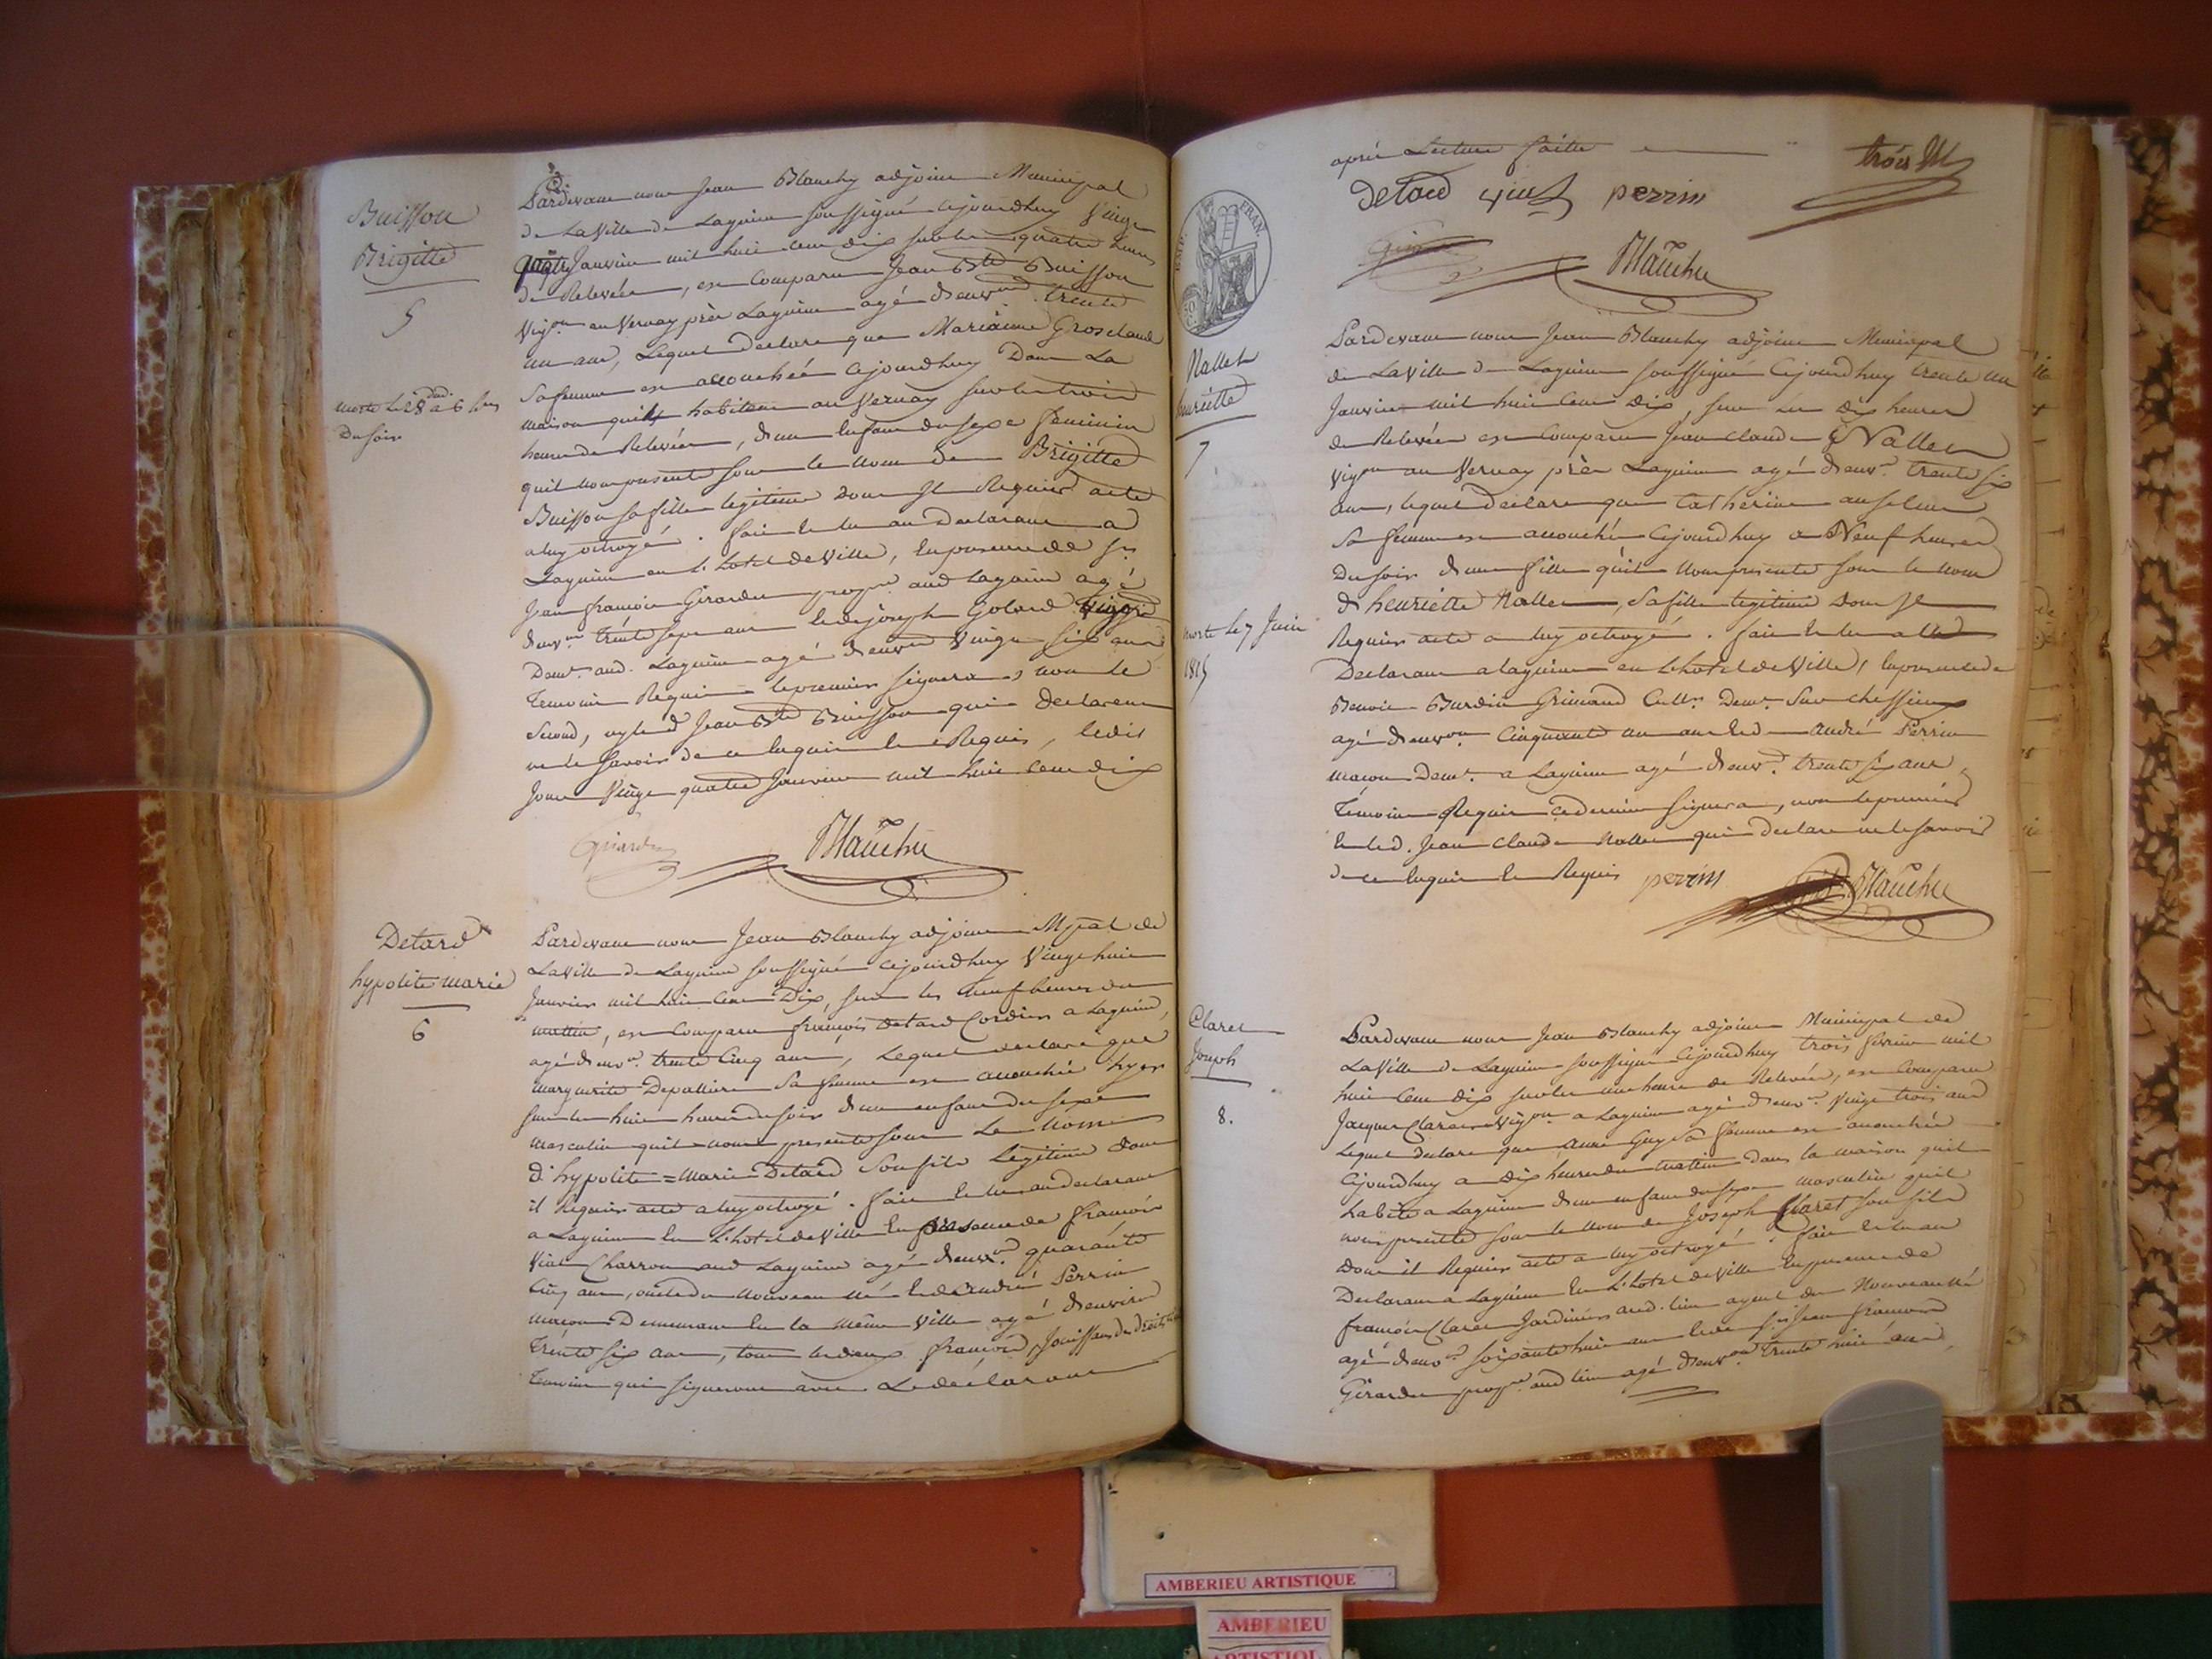 Buisson
Brigitte
5
morte le 28 dud. a 6 hes
du soir
Pardevant nous Jean Blanchy adjoint Municipal
de La Ville de Lagnieu soussigné Cejourdhuy Vingt
quatre Janvier mil huit cent dix sur les quatre heures
de Relevée, est Comparu Jean Bte Buisson
Vigon au Vernay près Lagnieu agé d'envon trente
un ans, Lequel declare que Mariaime Grosclaud
Sa femme est accouchée Cejourdhuy Dans La
maison quils habitent au Vernay sur les trois
heures de Relevée, d'un Enfant du sexe feminin
quil nous presente sous le nom de Brigitte
Buisson sa fille legitime dont Il Requiert acte
a luy octroyé. fait et lu au Declarant a
Lagnieu en L'hotel de Ville, En presence de Sr
Jean françois Girardin propre aud Lagnieu agé
d'envon trente sept ans et de joseph Golard Vigon
Demt aud. Lagnieu agé d'envon Vingt six ans
Temoins Requis le premier signera, non le
Second, ny led Jean Bte Buisson qui declarent
ne le savoir de ce Enquis et Requis, ledit
Jour Vingt quatre Janvier mil huit cent dix
Blanchy
Detard
hypolite marie
6
Pardevant nous Jean Blanchy adjoint Mpal de
La Ville de Lagnieu soussigné cejourdhuy Vingt huit
Janvier mil huit Cent Dix, sur les neuf heures du
matin, est Comparu françois Detard Cordier a Lagnieu,
agé d'envn trente Cinq ans, Lequel declare que
marguerite Depallier Sa femme est accouchée hyer
sur les huit heures du soir d'un enfant du sexe
masculin quil nous presente sous Le Nom
d'hypolite=Marie Detard Son fils Legitime dont
il Requiert acte a luy octroyé. fait et lu au declarant
a Lagnieu En L'hotel de Ville En presence de françois
Vial Charron aud Lagnieu agé d'envn quarante
Cinq ans, oncle du Nouveau né et de andré Perrin
maçon Demeurant En la même Ville agé d'environ
Trente six ans, tous les deux françois, Jouissans des droits
Temoins qui signeront avec Le déclarant
après Lecture faite
trois
detard vial perrin
Blanchy
Nallet
henriette
7
morte le 7 Juin
1815
Pardevant nous Jean Blanchy adjoint Municipal
de La Ville de Lagnieu soussigné Cejourdhuy trente un
Janvier mil huit Cent Dix, sur les Dix heures
de Relevée est Comparu Jean claude Nallet
Vign au Vernay près Lagnieu agé d'envn trente six
ans, lequel declare que Catherine anselme
Sa femme est accouchée Cejourdhuy a Neuf heures
Du soir d'une fille qu'il Nous presente sous le nom
d'henriette Nallet, Sa fille legitime dont Il
Requiert acte a luy octroyé. fait et lu a lad
Declarant a Lagnieu en L'hotel de Ville, En presence de
Benoit Burdin Grimand Cultr Demt Sur
agé d'envon Cinquante un ans et de andré Perrin
maçon Demt a Lagnieu agé d'envn trente six ans,
Témoins Requis ce dernier signera, non le premier
et led. Jean claude Nallet qui declare ne le savoir
de ce Enquis et Requis perrin
Blanchy
Claret
Joseph
8.
Pardevant nous Jean Blanchy adjoint Municipal de
La Ville de Lagnieu soussigné Cejourdhuy trois fevrier mil
huit Cent dix sur les une heure de Relevée, est Comparu
Jacques Claret Vigon a Lagnieu agé d'envn Vingt trois ans
Lequel declare que anne Guy Sa femme est accouchée
Cejourdhuy a dix heures du matin dans la maison quil
habite a Lagnieu d'un enfant du sexe masculin quil
nous presente sous le nom de Joseph Claret son fils
Dont il Requiert acte a luy octroyé. fait et lu au
Declarant a Lagnieu En L'hotel de Ville En presence de
françois Claret Jardinier aud. lieu ayeul du Nouveau né
agé d'envn soixante huit ans et de Sr Jean francois
Girardin propre aud lieu agé d'envon trente huit ans
AMBERIEU ARTISTIQUE
AMBERIEU
ARTISTIQUE